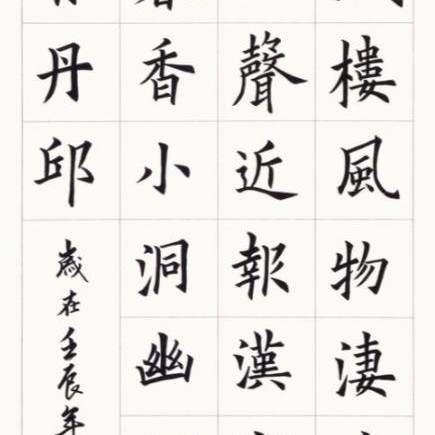 樓風物淒
聲近報漢
香小洞幽
丹邱
歲在壬辰年